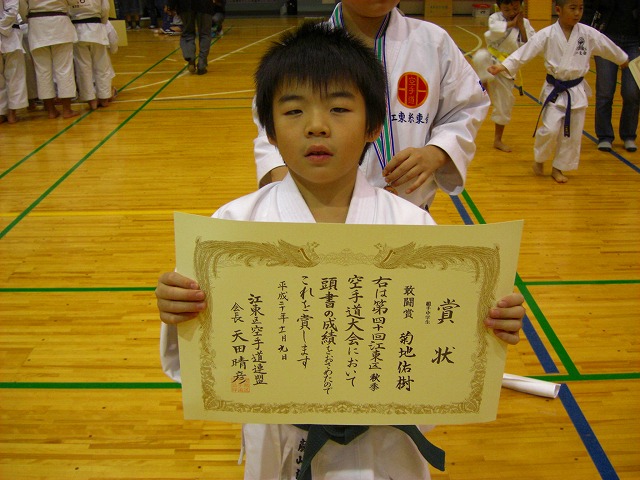 賞状
敢闘賞 菊地佑樹
右は第四十回江東区秋季
空手道大会において
頭書の成績をおさめたので
これを賞します
平成二十年十一月九日
江東区空手道連盟
会長 天田晴彦
空手道